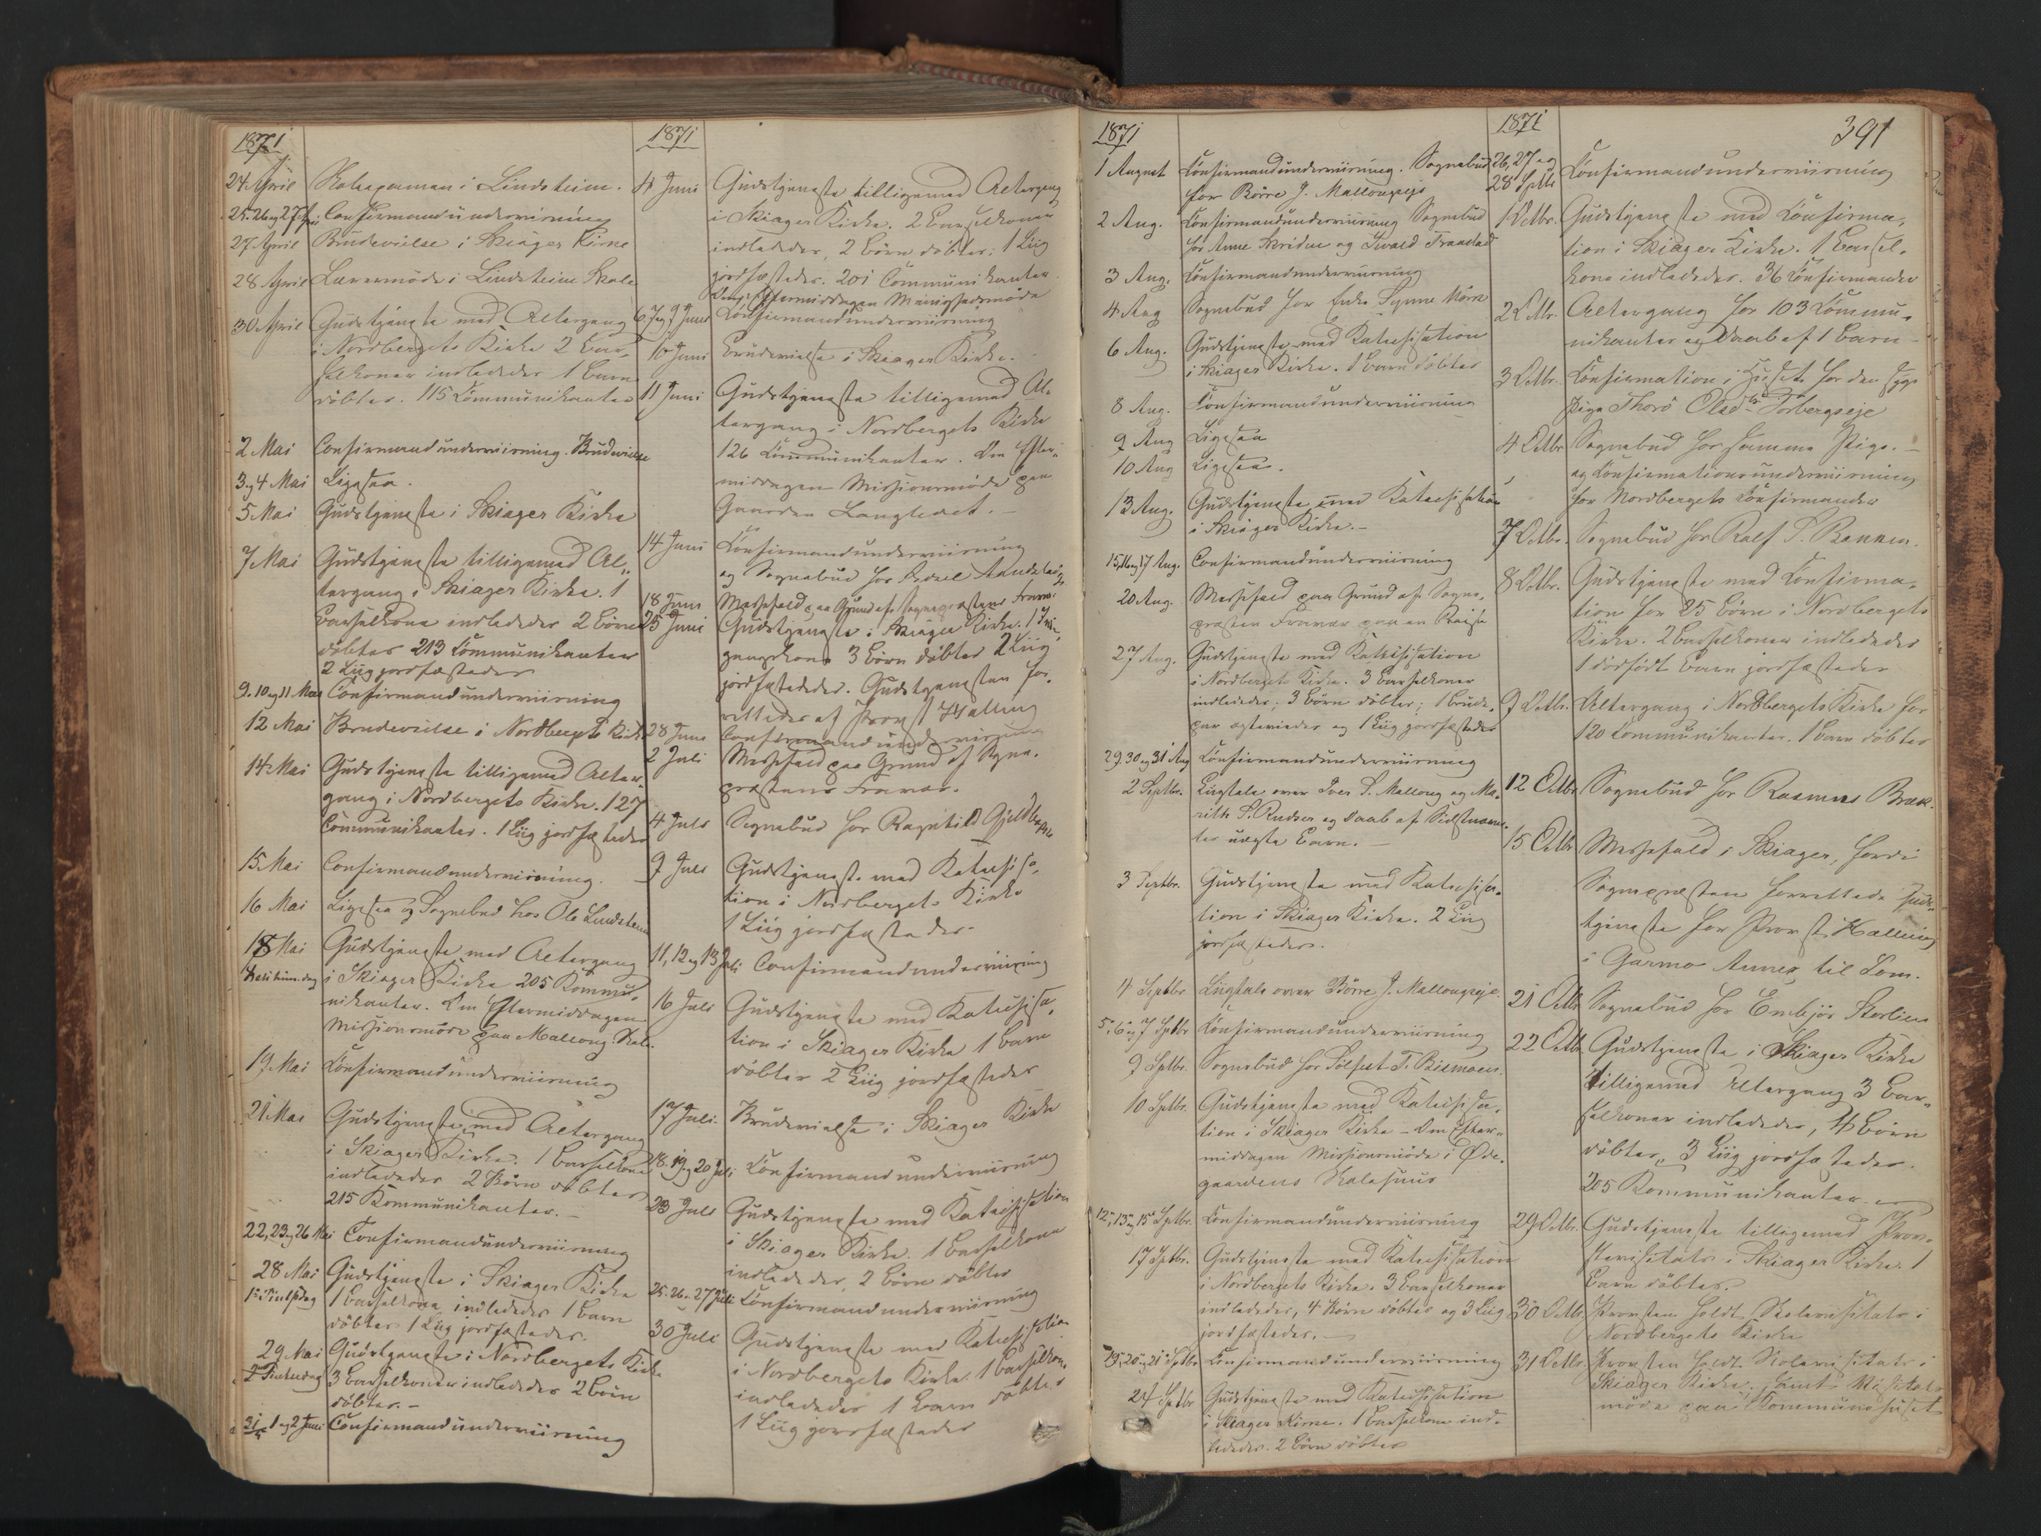 1871
24 April Skoleexamen i Lindsheim.
25. 26 og 27 Apr. Confirmandunderviisning
27 April Brudevielse i Skiager Kirke
28 April Læremøde i Lindsheim Skole
30 April Gudstjeneste med Altergang
i Nordbergets Kirke 2 Bar-
selkoner indledede 1 Barn
døbtes. 115 Communikanter
2 Mai Confirmandunderviisning. Brudevielse
3 og 4 Mai Ligesaa.
5 Mai Gudstjeneste i Skiager Kirke
7 Mai Gudstjeneste tilligemed Al-
tergang i Skiager Kirke. 1
Barselkone indlededes 2 Børn
døbtes 213 Communikanter
2 Liig jordfæstedes
9. 10 og 11. Mai Confirmandunderviisning
12 Mai Brudevielse i Nordbergets Kirke
14 Mai Gudstjeneste tilligemed Alter-
gang i Nordbergets Kirke. 127
Communikanter. 1 Liig jordfæstedes
15 Mai Confirmandunderviisning.
16 Mai Ligesaa og Sognebud hos Ole Lindsheim
18 Mai Gudstjeneste med Altergang
i Skiager Kirke 205 Kommu-
nikanter. Om Eftermiddagen
Missionsmøde paa Mallong Skole.
19 Mai Confirmandunderviisning
21 Mai Gudstjeneste med Altergang
i Skiager Kirke. 1 Barselkone
indlededes 2 Børn døbtes
215 Kommunikanter. -
22, 23 og 26 Mai Confirmandunderviisning
28 Mai Gudstjeneste i Skiager Kirke
1st Pintsdag 1 Barselkone indlededes 1 Barn
døbtes 1 Liig jordfæstedes.
29 Mai Gudstjeneste i Nordbergets Kirke
2den Pintsedag 3 Barselkoner indlededes 2 Børn
døbtes. -
31 1 og 2 Juni Confirmandunderviisning
1871
4 Juni Gudstjeneste tilligemed Altergang
i Skiager Kirke. 2 Barselkoner
indlededes, 2 Børn døbtes. 1 Liig
jordfæstedes. 201 Communikanter.
Eftermiddagen Menighedsmøde
6 7 og 9 Juni Confirmandunderviisning
10 Juni Brudevielse i Skiager Kirke.
11 Juni Gudstjeneste tilligemed Al-
tergang i Nordbergets Kirke
126 Communikanter. Om Efter-
middagen Missionsmøde paa
Gaarden Langledet. -
14 Juni Confirmandunderviisning
og Sognebud hos
18 Juni Messefald paa Grund af Sognepræstens Fravær
25 Juni Gudstjeneste i Skiager Kirke. 1
3 Børn døbtes 2 Liig
jordfæstedes. Gudstjenesten for-
rettedes af Provst Halling
28 Juni Confirmandunderviisning
2 Juli Messefald paa Grund af Sogne-
præstens Fravær.
4 Juli Sognebud for Ragnhild
9 Juli Gudstjeneste med Katechisa-
tion i Nordbergets Kirke
1 Liig jordfæstedes.
11, 12 og 13 Juli Confirmandunderviisning
16 Juli Gudstjeneste med Katechisa-
tion i Skiager Kirke 1 Barn
døbtes 2 Liig jordfæstedes
17 Juli. Brudevielse i Skiager Kirke
18. 19 og 20 Juli Confirmandunderviisning
23 Juli Gudstjeneste med Katechisation
i Skiager Kirke. 1 Barselkone
indlededes, 2 Børn døbtes
25. 26. 27 Juli Confirmandunderviisning
30 Juli Gudstjeneste med Katechisation
i Nordbergets Kirke. 1 Barselkone
indlededes 1 Barn døbtes
1 Liig jordfæstedes
1871
1 August Confirmandunderviisning. Sognebud
for Børre J. Mallongseje
2 Aug. Confirmandunderviisning Sognebud
for Anne Skriden og Iwald Fraastad
3 Aug. Confirmandunderviisning
4 Aug Sognebud for Enke Synne Mork
6 Aug. Gudstjeneste med Katechisation
i Skiager Kirke. 1 Barn døbtes
8 Aug. Confirmandunderviisning
9 Aug Ligesaa
10 Aug Ligesaa.
13 Aug. Gudstjeneste med Katechisation
i Skiager Kirke. -
15, 16 og 17 Aug. Confirmandunderviisning
20 Aug. Messefald paa Grund af Sogne-
præsten Fravær paa en Reise
27 Aug. Gudstjeneste med Katechisation
i Nordbergets Kirke. 3 Barselkoner
indlededes; 3 Børn døbtes; 1 Brude-
par ægteviedes og 1 Liig jordfæstedes
29. 30 og 31 Aug Confirmandunderviisning
2 Septbr. Liigtale over Iver S. Mallong og Ma-
rith S. Rudser og Daab af Sidstnævn-
tes uægte Barn. -
3 Septbr. Gudstjeneste med Katechisa-
tion i Skiager Kirke. 2 Liig
jordfæstedes.
4 Septbr Liigtale over Børre J. Mallongseje.
5, 6 og 7 Septbr Confirmandunderviisning
9 Septbr. Sognebud for Sølfest T. Bismoen.
10 Septbr. Gudstjeneste med Katechisa-
tion i Skiager Kirke - Om Efter-
middagen Missionsmøde i Øde-
gaardens Skolehuus
12, 13 og 15 Septbr. Confirmandunderviisning
17 Septbr. Gudstjeneste med Katechisation
i Nordbergets Kirke. 3 Barselkoner
indlededes, 4 Børn døbtes og 3 Liig
jordfæstedes. -
19, 20 og 21 Septbr Confirmandunderviisning
24 Septbr Gudstjeneste med Katechisation
i Skiager Kirke. 1 Barselkone ind-
lededes. 2 Børn døbtes
1871
391
26, 27 og
28 Septbr Confirmandunderviisning
1 Octbr. Gudstjeneste med Confirma-
tion i Skiager Kirke. 1 Barsel-
kone indlededes. 36 Confirmander
2 Octbr. Altergang for 103 Commu-
nikanter og Daab af 1 Barn -
3 Octbr. Confirmation i Huset for den syge
Pige Thorø Olsdtr Forbergseje
4 Octbr Sognebud for samme Pige. -
og Confirmationsunderviisning
for Nordbergets Confirmander
7 Octbr. Sognebud for Rolf P. Bakken.
8 Octbr. Gudstjeneste med Confirma-
tion for 25 Børn i Nordbergets
Kirke. 2 Barselkoner indlededes
1 dødfødt Barn jordfæstedes
9 Octbr. Altergang i Nordbergets Kirke for
120 Communikanter. 1 Barn døbtes
12 Octbr Sognebud for Rasmus Bræk.
15 Octbr Messefald i Skiager, fordi
Sognepræsten forrettede Guds-
tjeneste for Provsti Halling
i Garmo Annex til Lom.
21 Octbr Sognebud for Embjør Storlien
22 Octbr Gudstjeneste i Skiager Kirke
tilligemed Altergang 3 Bar-
selkoner indlededes, 4 Børn
døbtes, 3 Liig jordfæstedes.
205 Kommunikanter. -
29 Octbr. Gudstjeneste tilligemed Prov-
stevisitats i Skiager Kirke. 1
Barn døbtes.
30 Octbr. Provsten holdt Skolevisitats i
Nordbergets Kirke
31 Octbr. Provsten holdt Skolevisitats i
Skiager Kirke, samt Visitats-
møde paa Communehuset